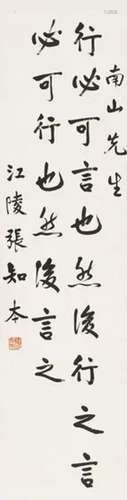 南山先生
行必可言也然後行之言
必可行也然後言之
江陵張知本